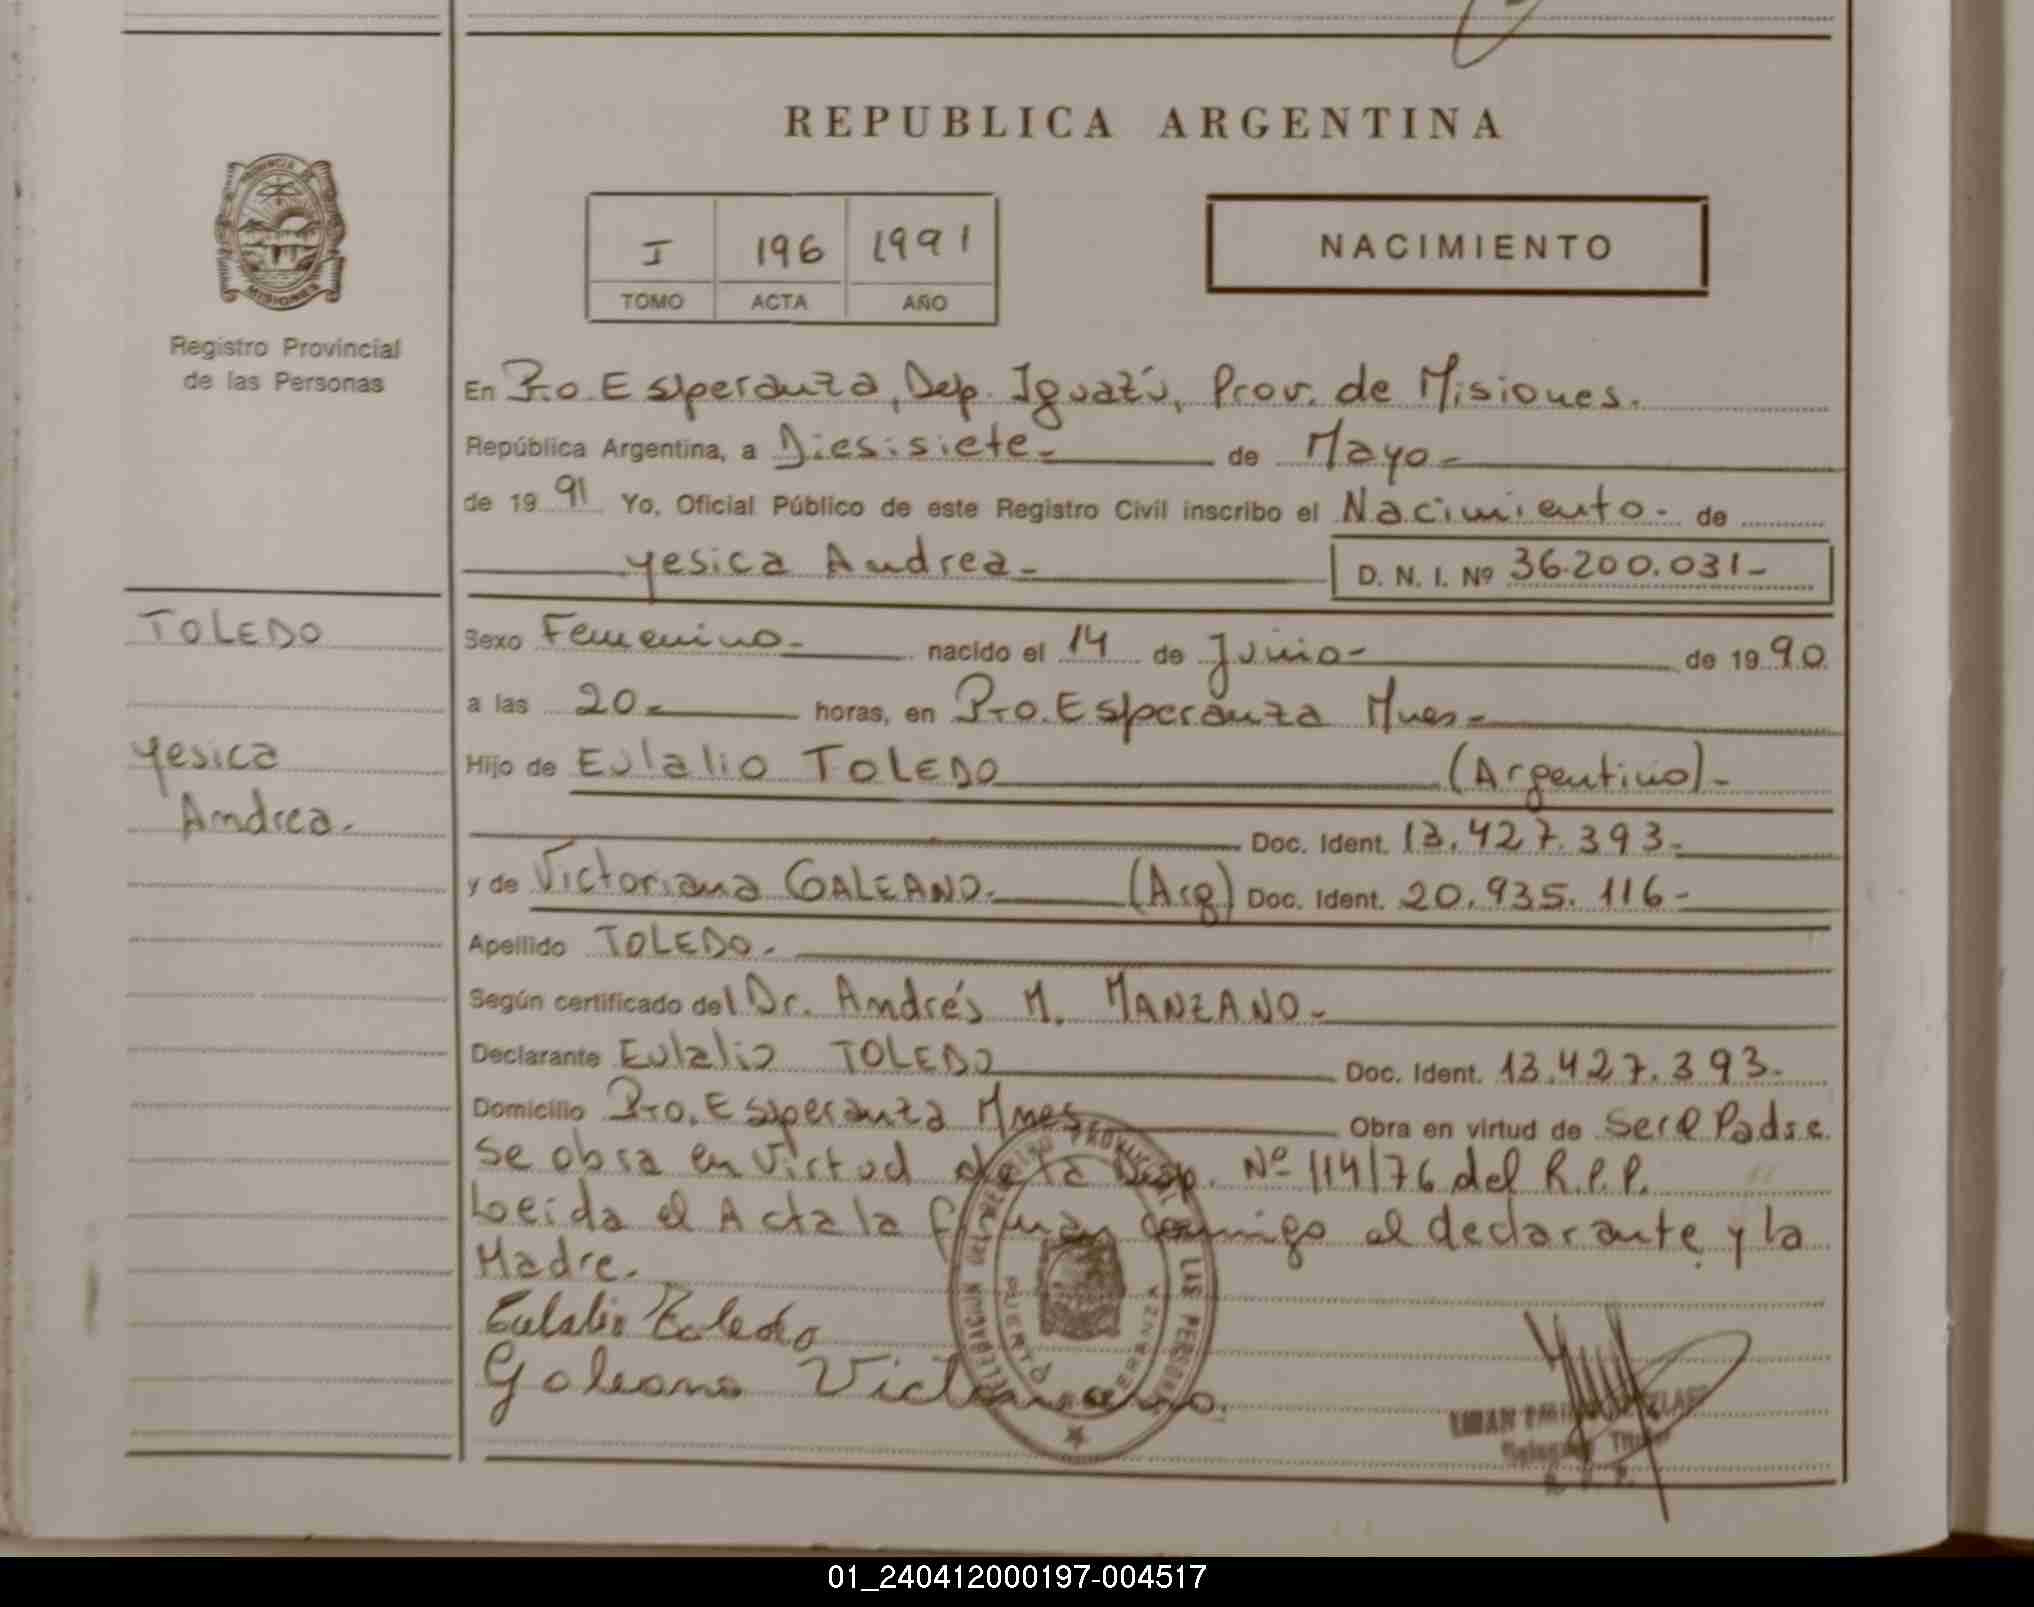 REPUBLICA ARGENTINA
PROVINCIA DE
MISIONES
Registro Provincial
de las Personas
I 196 1991
TOMO ACTA AÑO
NACIMIENTO
En Pto. Esperanza, Dep. Iguazú, Prov. de Misiones.
República Argentina, a Diesisiete- de Mayo-
de 1991 Yo, Oficial Público de este Registro Civil inscribo el Nacimiento- de
yesica Andrea-
D. N. I. Nº 36.200.031-
TOLEDO
Sexo Femenino- nacido el 14 de Junio- de 1990
a las 20- horas, en Pto. Esperanza Mnes-
yesica
Andrea.
Hijo de Eulalio TOLEDO (Argentino)-
Doc. Ident. 13.427.393-
y de Victoriana GALEANO. (Arg) Doc. Ident. 20.935.116-
Apellido TOLEDO.
Según certificado del Dr. Andrés M. MANZANO-
Declarante Eulalio TOLEDO Doc. Ident. 13.427.393-
Domicilio Pto. Esperanza Mnes Obra en virtud de ser el Padre.
se obra en Virtud de la Disp. Nº 114/76 del R.P.P.
Leida el Acta la firman conmigo el declarante y la
Madre.
Eulalio Toledo
Galeano Victoriana.
DELEGACION DEL REGISTRO PROVINCIAL DE LAS PERSONAS
PUERTO ESPERANZA
01_240412000197-004517